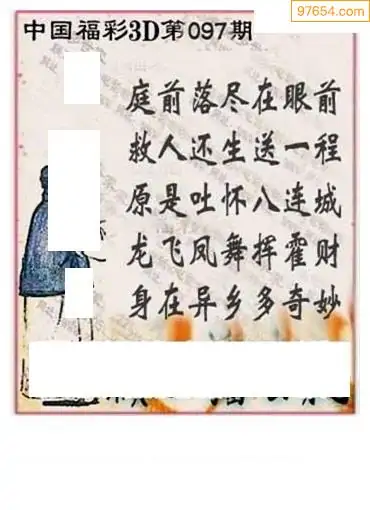 97654.com
中国福彩3D第097期
庭前落尽在眼前
救人还生送一程
原是吐怀八连城
龙飞凤舞挥霍财
身在异乡多奇妙